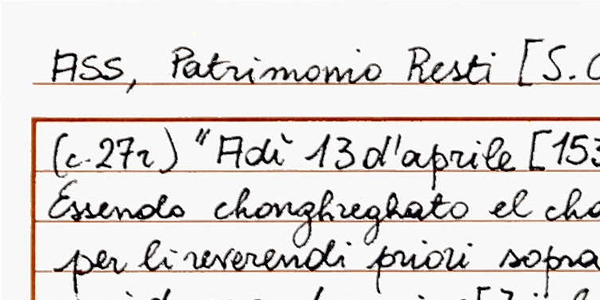 ASS, Patrimonio Resti [S.
(c.27r) "Adì 13 d'aprile [153
Essendo chonghreghato el
per li reverendi priori sopra